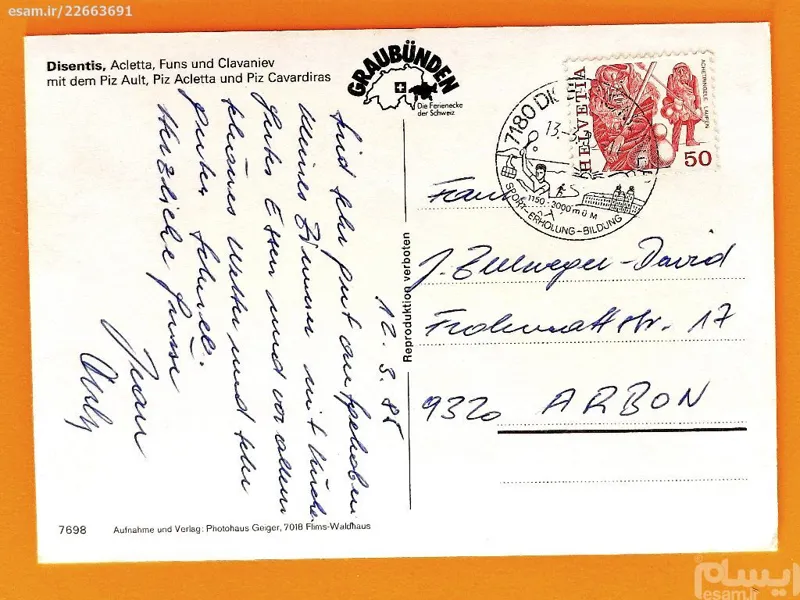 esam.ir/22663691
Disentis, Acletta, Funs und Clavaniev
mit dem Piz Ault, Piz Acletta und Piz Cavardiras
GRAUBÜNDEN
Die Ferienecke
der Schweiz
7180 DI
13.-3.
1150-3000 m ü M
SPORT-ERHOLUNG-BILDUNG
HELVETIA
ACHETRINGELE LAUPEN
50
12. 3. 85
Sind sehr gut aufgehoben
kleines Zimmer mit Küche
Gutes Essen und vor allem
schönes Wetter und sehr
guter Schnee.
Herzliche Grüsse
Jean
Reproduktion verboten
Frau
J. Zellweger-David
str. 17
9320 ARBON
7698
Aufnahme und Verlag: Photohaus Geiger, 7018 Flims-Waldhaus
ایسام
esam.ir